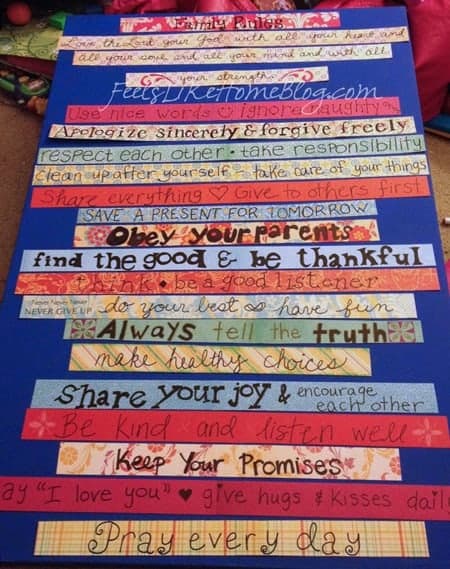 Family Rules
Love the Lord your God with all your heart and
all your soul and all your mind and with all
your strength.
FeelsLikeHomeBlog.com
Use nice words ☺ ignore naughty
Apologize sincerely & forgive freely
respect each other • take responsibility
Clean up after yourself - take care of your things
Share everything ♡ Give to others first
SAVE A PRESENT FOR TOMORROW
Obey your parents
find the good & be thankful
think • be a good listener
Never Never Never
NEVER GIVE UP
do your best & have fun
Always tell the truth
make healthy choices
Share your joy & encourage
each other
Be Kind and listen well
Keep Your Promises
ay "I love you" ♥ give hugs & kisses daily
Pray every day